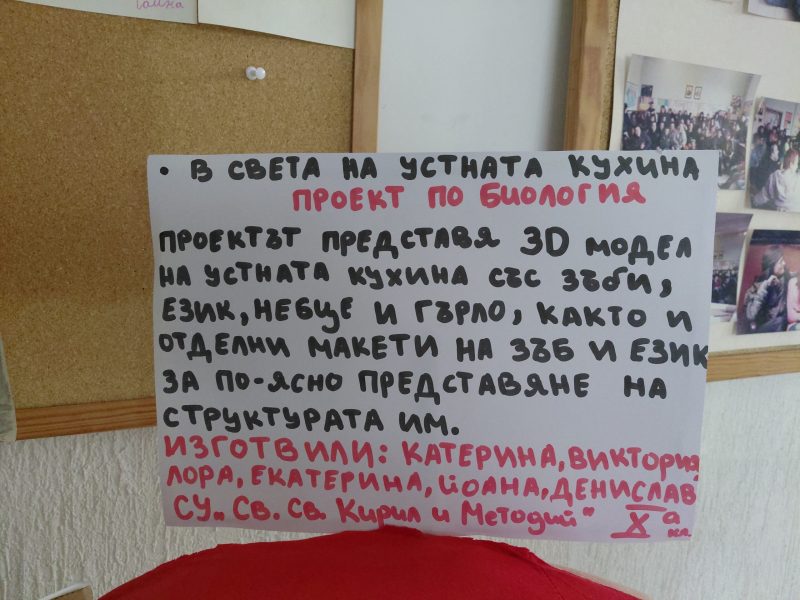 Галина
• В СВЕТА НА УСТНАТА КУХИНА
ПРОЕКТ ПО БИОЛОГИЯ
ПРОЕКТЪТ ПРЕДСТАВЯ 3D МОДЕЛ
НА УСТНАТА КУХИНА СЪС ЗЪБИ,
ЕЗИК, НЕБЦЕ И ГЪРЛО, КАКТО И
ОТДЕЛНИ МАКЕТИ НА ЗЪБ И ЕЗИК
ЗА ПО-ЯСНО ПРЕДСТАВЯНЕ НА
СТРУКТУРАТА ИМ.
ИЗГОТВИЛИ: КАТЕРИНА, ВИКТОРИЯ,
ЛОРА, ЕКАТЕРИНА, ЙОАНА, ДЕНИСЛАВ
СУ „Св. Св. Кирил и Методий" X а кл